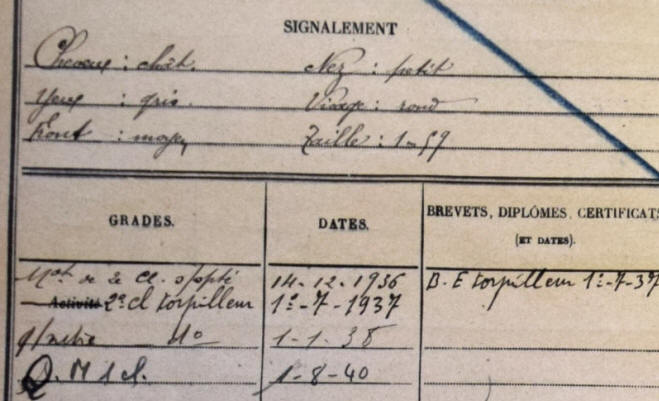 SIGNALEMENT
Cheveux : chât. Nez : petit
Yeux : gris. Visage : rond
Front : moyen Taille : 1m59
GRADES. DATES. BREVETS, DIPLÔMES, CERTIFICATS
(ET DATES).
Mot de 2e cl. s/spté 14-12-1936 B. E torpilleur 1e-7-37
Activité 2e cl torpilleur 1e-7-1937
q/metre do 1-1-38
Q. M 1 cl. 1-8-40